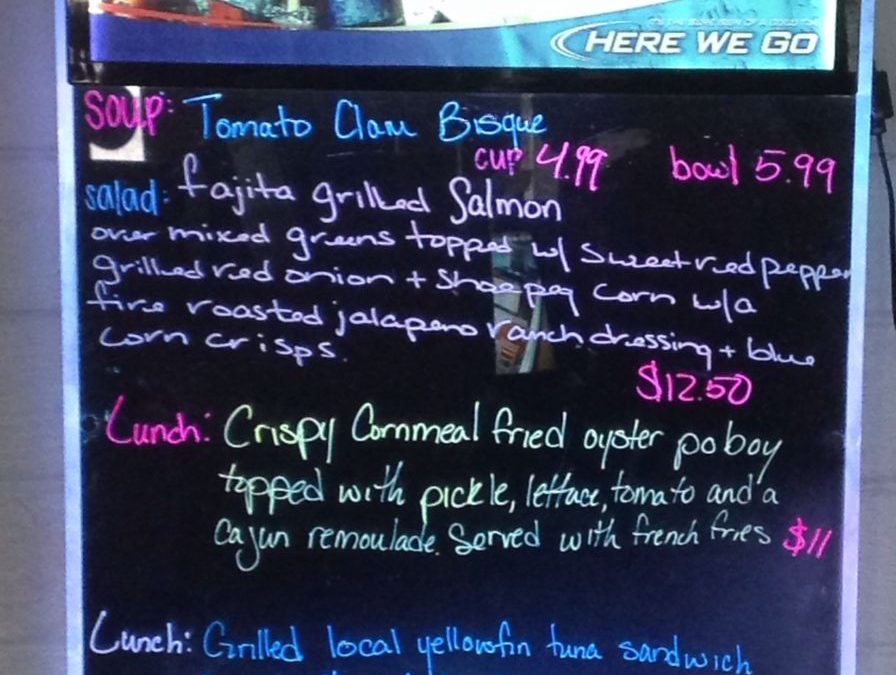 HERE WE GO
Soup: Tomato Clam Bisque
cup 4.99 bowl 5.99
salad: fajita grilled Salmon
over mixed greens topped w/ sweet red pepper
grilled red onion + shoepeg corn w/a
fire roasted jalapeno ranch dressing + blue
corn crisps.
$12.50
Lunch: Crispy Cornmeal fried oyster po boy
topped with pickle, lettuce, tomato and a
Cajun remoulade. Served with french fries $11
Lunch: Grilled local yellowfin tuna sandwich